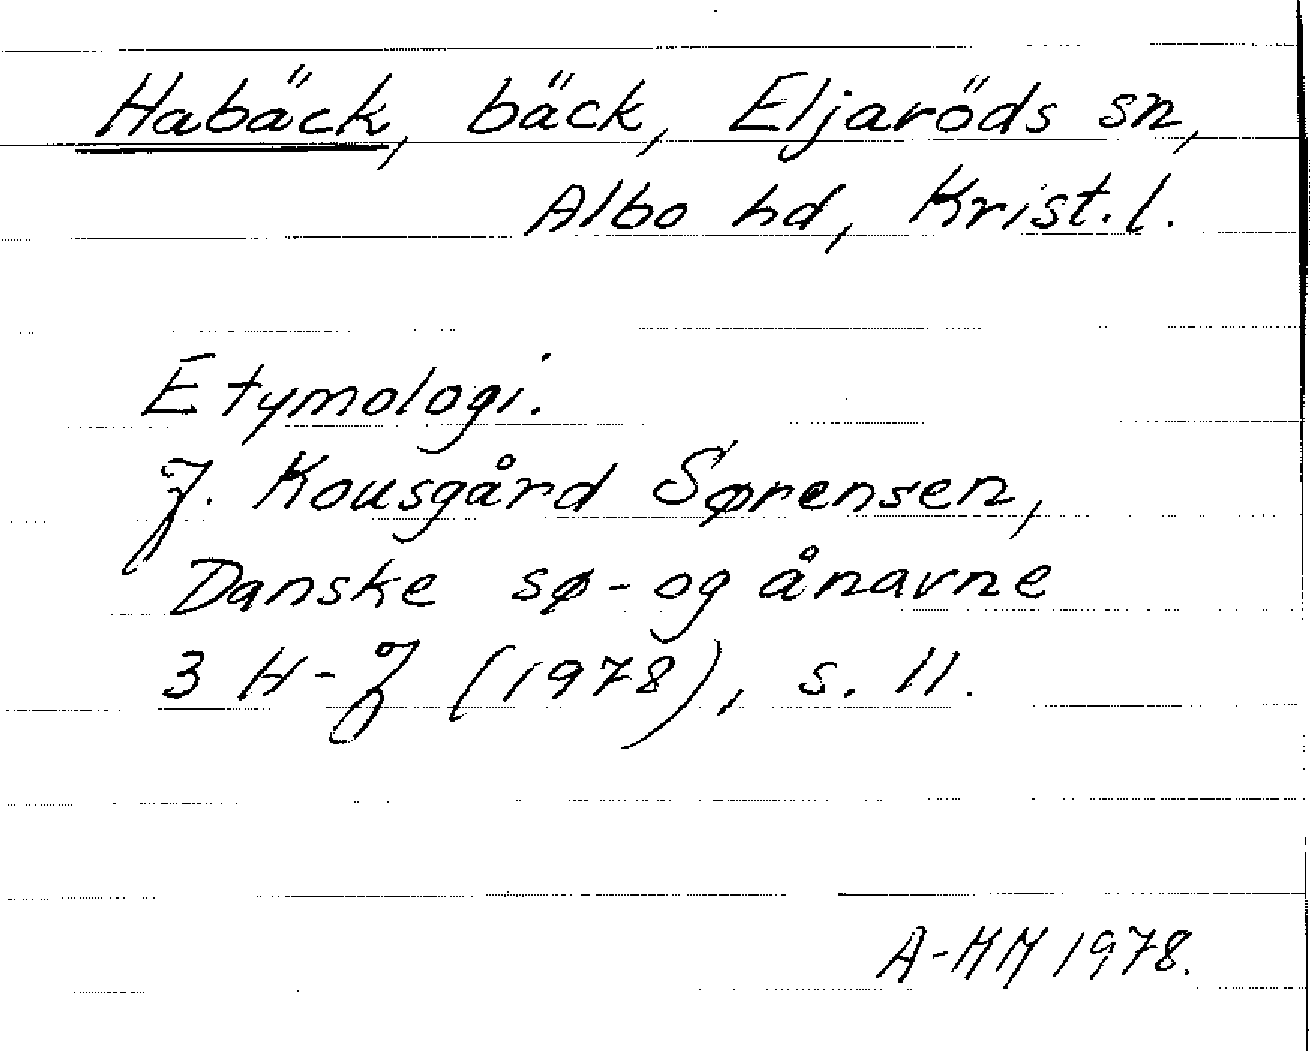 Habäck, bäck, Eljaröds sn,
Albo hd, Krist. l.
Etymologi.
J. Kousgård Sørensen,
Danske sø- og ånavne
3 H-J (1978), s. 11.
A-HM 1978.